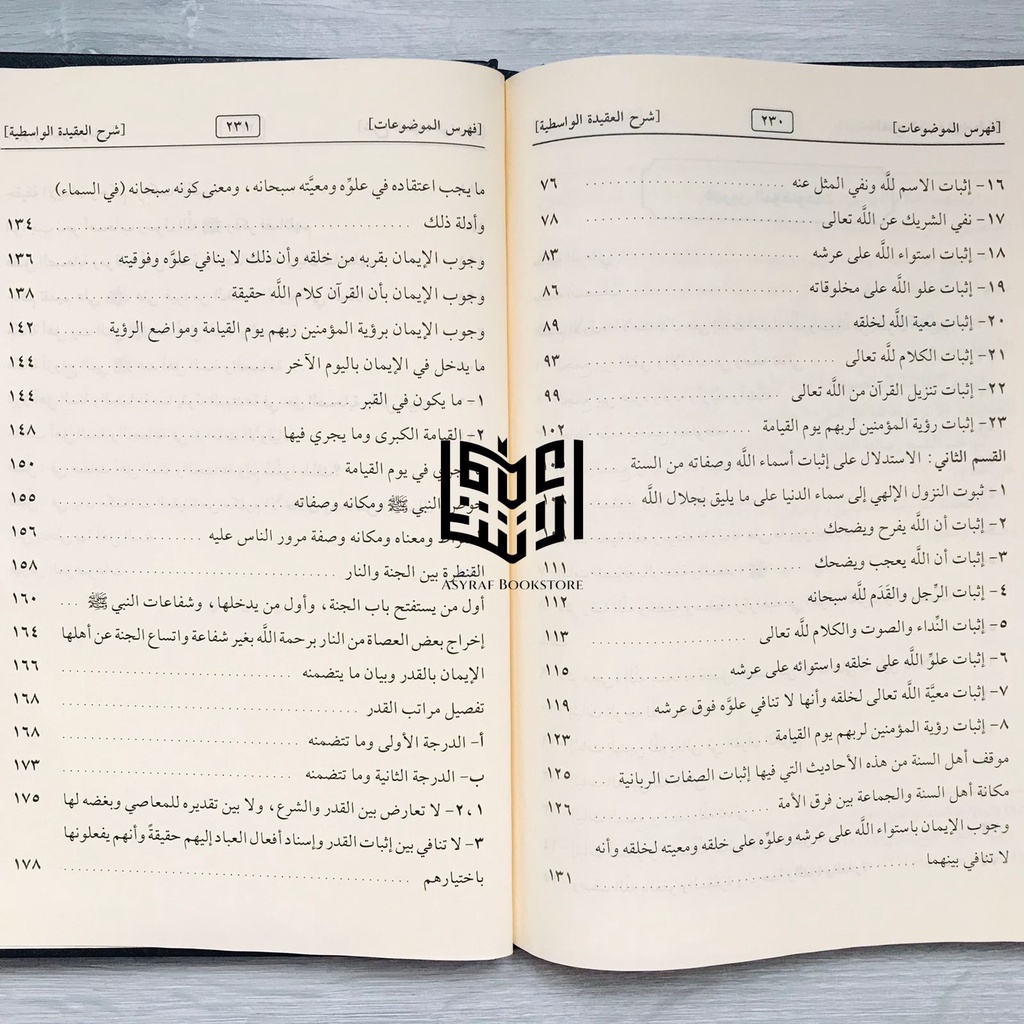 [فهرس الموضوعات] ٢٣٠ [شرح العقيدة الواسطية]
١٦- إثبات الاسم للَّه ونفي المثل عنه ٧٦
١٧- نفي الشريك عن اللَّه تعالى ٧٨
١٨- إثبات استواء اللَّه على عرشه ٨٣
١٩- إثبات علو اللَّه على مخلوقاته ٨٦
٢٠- إثبات معية اللَّه لخلقه ٨٩
٢١- إثبات الكلام للَّه تعالى ٩٣
٢٢- إثبات تنزيل القرآن من اللَّه تعالى ٩٩
٢٣- إثبات رؤية المؤمنين لربهم يوم القيامة ١٠٢
القسم الثاني: الاستدلال على إثبات أسماء اللَّه وصفاته من السنة
١- ثبوت النزول الإلهي إلى سماء الدنيا على ما يليق بجلال اللَّه
٢- إثبات أن اللَّه يفرح ويضحك
٣- إثبات أن اللَّه يعجب ويضحك ١١١
٤- إثبات الرِّجل والقَدَم للَّه سبحانه ١١٢
٥- إثبات النِّداء والصوت والكلام للَّه تعالى ١١٣
٦- إثبات علوِّ اللَّه على خلقه واستوائه على عرشه ١١٥
٧- إثبات معيَّة اللَّه تعالى لخلقه وأنها لا تنافي علوَّه فوق عرشه ١١٩
٨- إثبات رؤية المؤمنين لربهم يوم القيامة ١٢٣
موقف أهل السنة من هذه الأحاديث التي فيها إثبات الصفات الربانية ١٢٥
مكانة أهل السنة والجماعة بين فرق الأمة ١٢٦
وجوب الإيمان باستواء اللَّه على عرشه وعلوِّه على خلقه ومعيته لخلقه وأنه
لا تنافي بينهما ١٣١
[فهرس الموضوعات] ٢٣١ [شرح العقيدة الواسطية]
ما يجب اعتقاده في علوِّه ومعيَّته سبحانه، ومعنى كونه سبحانه (في السماء)
وأدلة ذلك ١٣٤
وجوب الإيمان بقربه من خلقه وأن ذلك لا ينافي علوَّه وفوقيته ١٣٦
وجوب الإيمان بأن القرآن كلام اللَّه حقيقة ١٣٨
وجوب الإيمان برؤية المؤمنين ربهم يوم القيامة ومواضع الرؤية ١٤٢
ما يدخل في الإيمان باليوم الآخر ١٤٤
١- ما يكون في القبر ١٤٤
٢- القيامة الكبرى وما يجري فيها ١٤٨
في يوم القيامة ١٥٠
حوض النبي ﷺ ومكانه وصفاته ١٥٥
ومعناه ومكانه وصفة مرور الناس عليه ١٥٦
القنطرة بين الجنة والنار ١٥٨
أول من يستفتح باب الجنة، وأول من يدخلها، وشفاعات النبي ﷺ ١٦٠
إخراج بعض العصاة من النار برحمة اللَّه بغير شفاعة واتساع الجنة عن أهلها ١٦٤
الإيمان بالقدر وبيان ما يتضمنه ١٦٦
تفصيل مراتب القدر ١٦٨
أ- الدرجة الأولى وما تتضمنه ١٦٨
ب- الدرجة الثانية وما تتضمنه ١٧٣
١،٢- لا تعارض بين القدر والشرع، ولا بين تقديره للمعاصي وبغضه لها ١٧٥
٣- لا تنافي بين إثبات القدر وإسناد أفعال العباد إليهم حقيقةً وأنهم يفعلونها
باختيارهم ١٧٨
ASYRAF BOOKSTORE